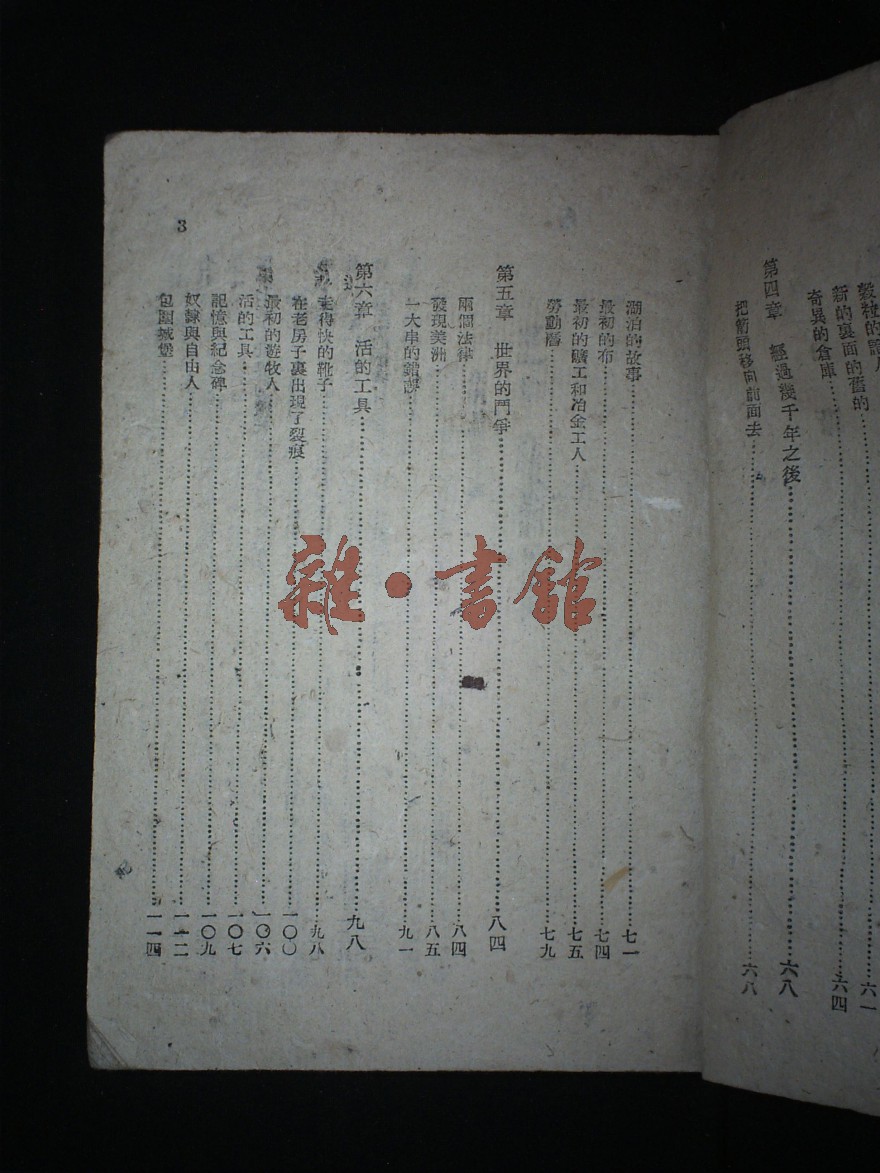 新的裏面的舊的
奇異的倉庫……六四
第四章 經過幾千年之後……六八
把箭頭移向前面去……六八
湖泊的故事……七一
最初的布……七四
最初的礦工和冶金工人……七五
勞動曆……七九
第五章 世界的鬥爭……八四
兩個法律……八四
發現美洲……八五
一大串的錯誤……九一
第六章 活的工具……九八
走得快的靴子……九八
在老房子裏出現了裂痕……一〇〇
最初的遊牧人……一〇六
活的工具……一〇七
記憶與紀念碑……一〇九
奴隸與自由人……一一二
包圍城堡……一一四
3
雜·書館